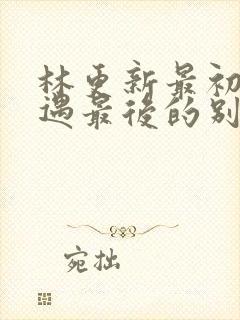 林更新最初
遇最後的别
宛拙